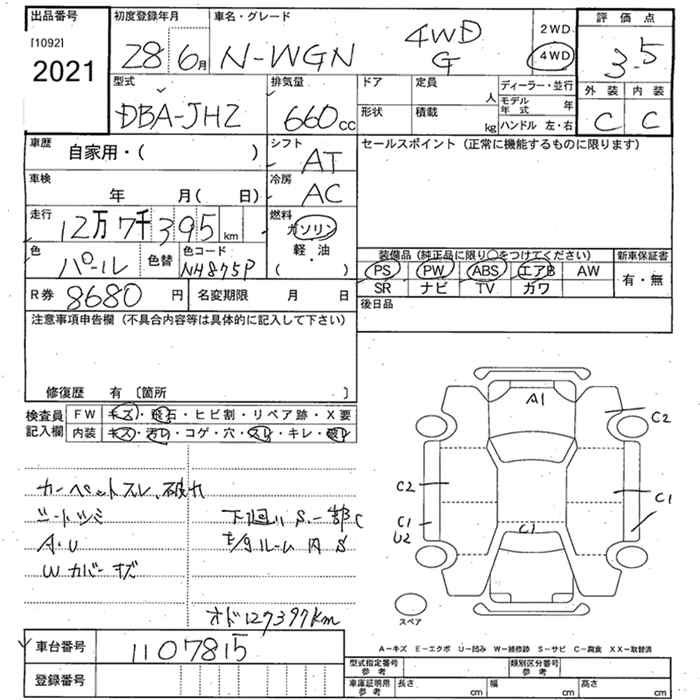 出品番号 初度登録年月 車名・グレード 評価点
[1092] 2021
28 6月 N-WGN 4WD G
2WD
4WD
3.5
外装 内装
C C
型式 排気量 ドア 定員 人 ディーラー・並行
DBA-JH2 660cc
モデル年式 年
形状 積載 kg ハンドル 左・右
車歴 自家用・( )
シフト AT
セールスポイント(正常に機能するものに限ります)
車検 年 月( 日)
冷房 AC
走行 12万7千395km
燃料 ガソリン 軽・油 ( )
色 パール 色替 色コード NH875P
装備品(純正品に限り○をつけてください) 新車保証書
PS PW ABS エアB AW 有・無
SR ナビ TV カワ
R券 8680円 名変期限 月 日
後日品
注意事項申告欄(不具合内容等は具体的に記入して下さい)
修復歴 有〔箇所 〕
検査員記入欄
FW キズ・飛石・ヒビ割・リペア跡・X要
内装 キズ・汚れ・コゲ・穴・スレ・キレ・破れ
カーペットスレ、破れ
シートシミ
A・U
Wカバーキズ
下廻りS.一部C
E/gルーム内S
オド127397km
A1
C2
C2
C1
C1
U2
C1
スペア
A-キズ E-エクボ U-凹み W-補修跡 S-サビ C-腐食 XX-取替済
車台番号 1107815
登録番号
型式指定番号 参考 類別区分番号 参考
車庫証明用 参考 長さ cm 幅 cm 高さ cm